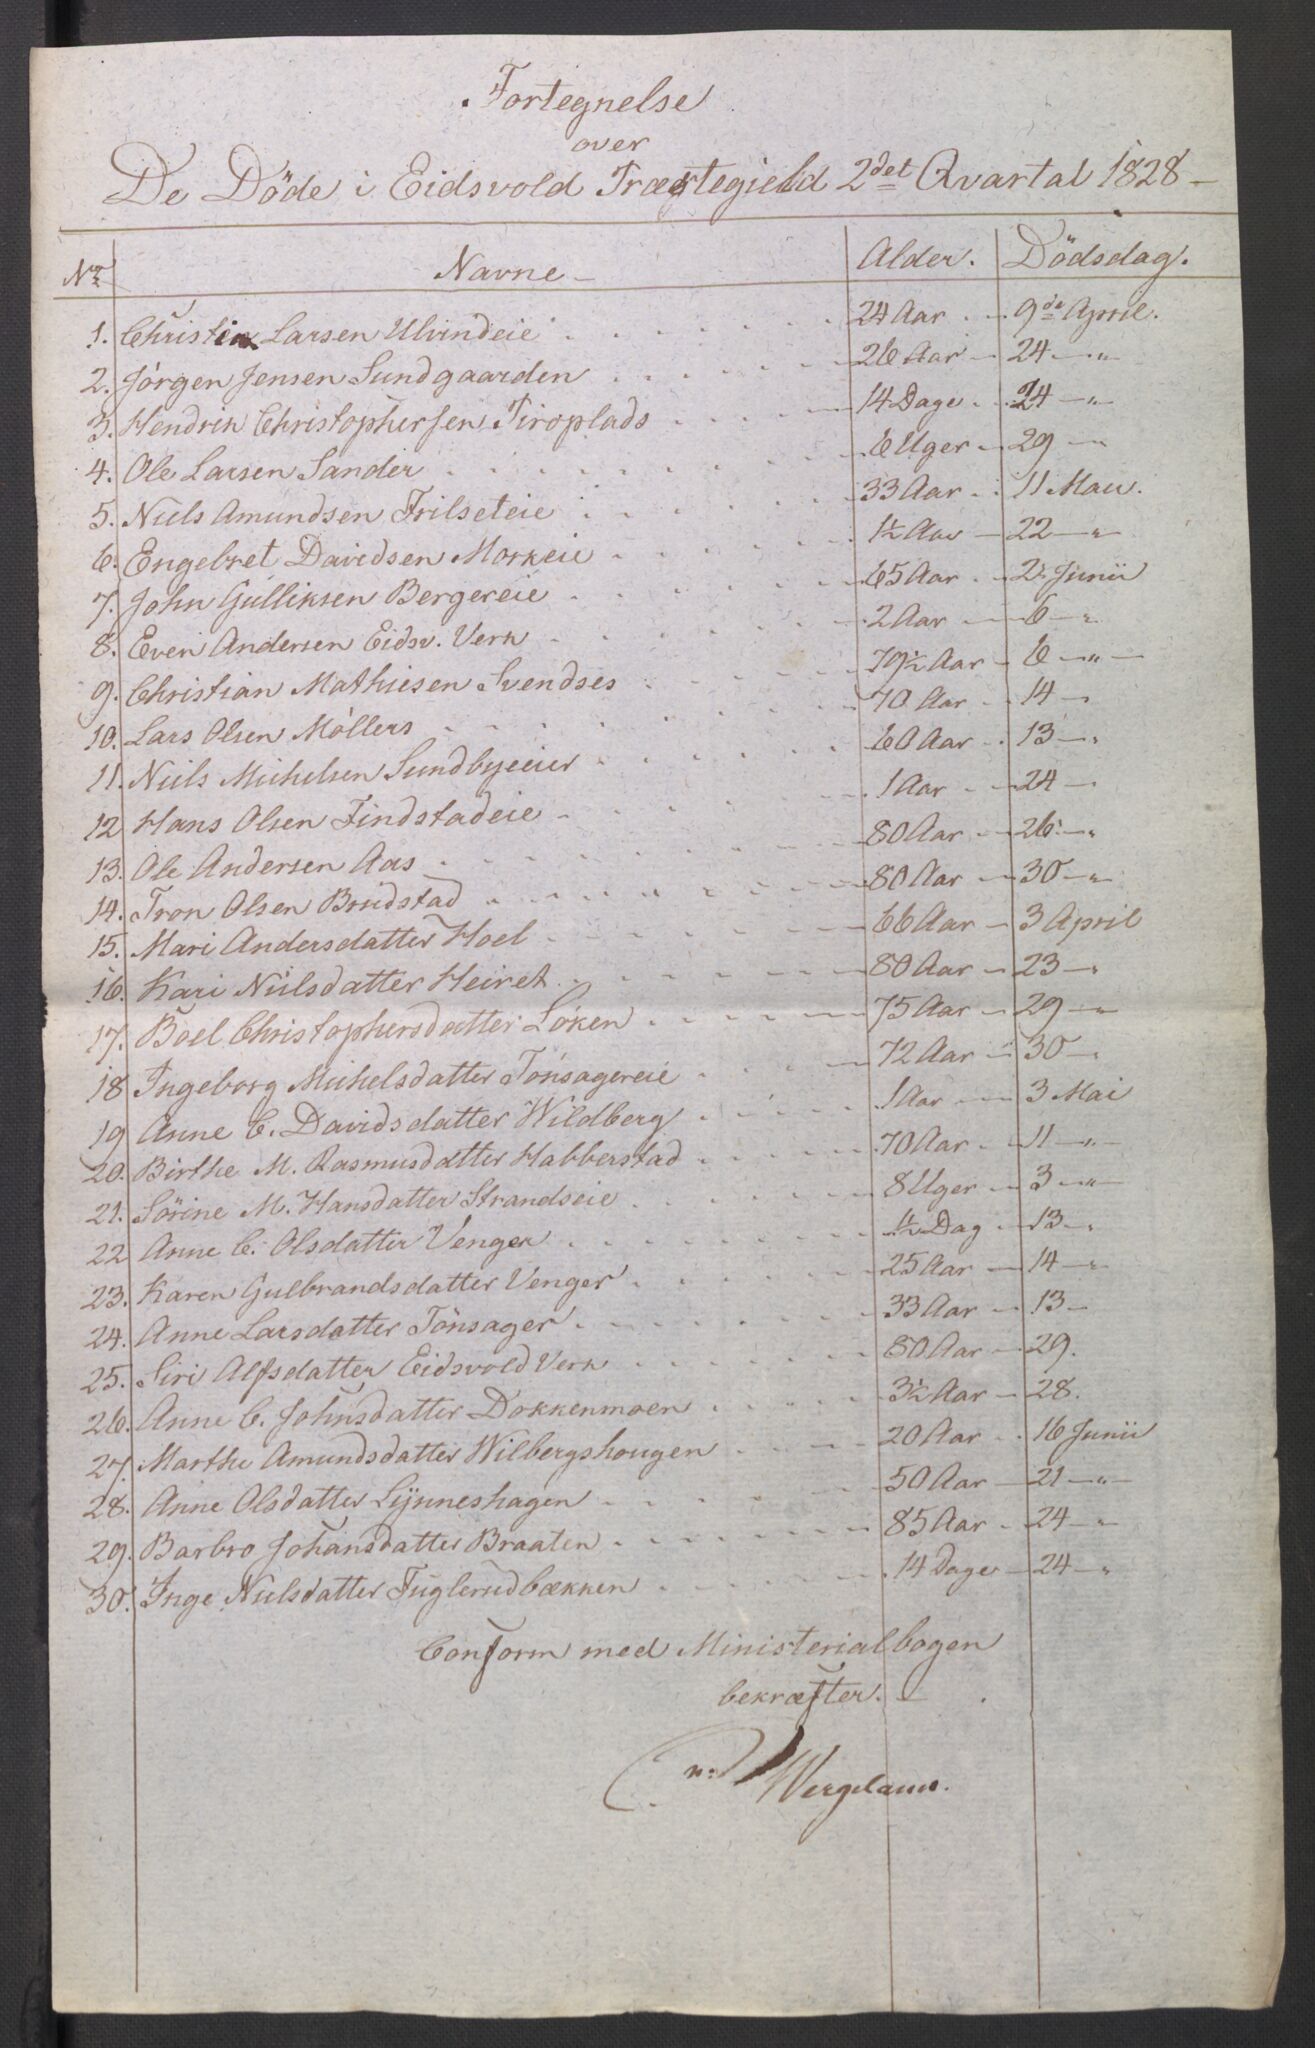 Fortegnelse
over
De Döde i Eidsvold Præstegield 2det Qvartal 1828 –
No Navne – Alder. Dödsdag.
1. Christian Larsen Ulvindeie 24 Aar 9de April.
2. Jörgen Jensen Sundgaarden 26 Aar 24 — "
3. Hendrik Christophersen Firoplads 14 Dage 24 — "
4. Ole Larsen Sander 6 Uger 29 — "
5. Niels Amundsen Frilseteie 33 Aar 11 Maii.
6. Engebret Davidsen Morkeie 1½ Aar 22 — "
7. John Gulliksen Bergereie 65 Aar 2. Junii
8. Even Andersen Eidsv. Verk 2 Aar 6 — "
9. Christian Mathiesen Svendses 79½ Aar 6 — " —
10. Lars Olsen Möllers 70 Aar 14 —
11. Niels Michelsen Sundbyeeier 60 Aar 13 — "
12 Hans Olsen Findstadeie 1 Aar 24 —
13. Ole Andersen Aas 80 Aar 26. — "
14. Tron Olsen Brudstad 80 Aar 30 — "
15. Mari Andersdatter Hoel 66 Aar 3 April
16. Kari Nielsdatter Heiret 80 Aar 23 — "
17. Boel Christophersdatter Löken 75 Aar 29 — "
18 Ingeborg Michelsdatter Tönsagereie 72 Aar 30 — "
19 Anne C. Davidsdatter Wildberg 1 Aar 3 Mai
20. Birthe M. Rasmusdatter Habberstad 70 Aar 11 — " —
21. Sörine M. Hansdatter Strandseie 8 Uger 3 — " —
22 Anne C. Olsdatter Venger ½ Dag 13 — "
23. Karen Gulbrandsdatter Venger 25 Aar 14 — "
24. Anne Larsdatter Tönsager 33 Aar 13 —
25. Siri Alfsdatter Eidsvold Verk 80 Aar 29.
26. Anne C. Johnsdatter Dokkenmoen 3½ Aar 28.
27. Marthe Amundsdatter Wilbergshougen 20 Aar 16 Junii
28. Anne Olsdatter Lÿnneshagen 50 Aar 21 — " —
29. Barbro Johansdatter Braaten 85 Aar 24 — "
30. Inge Nielsdatter Fuglerudbækken 14 Dage 24 — "
Conform med Ministerialbogen
bekræfter. —
N: Wergeland.